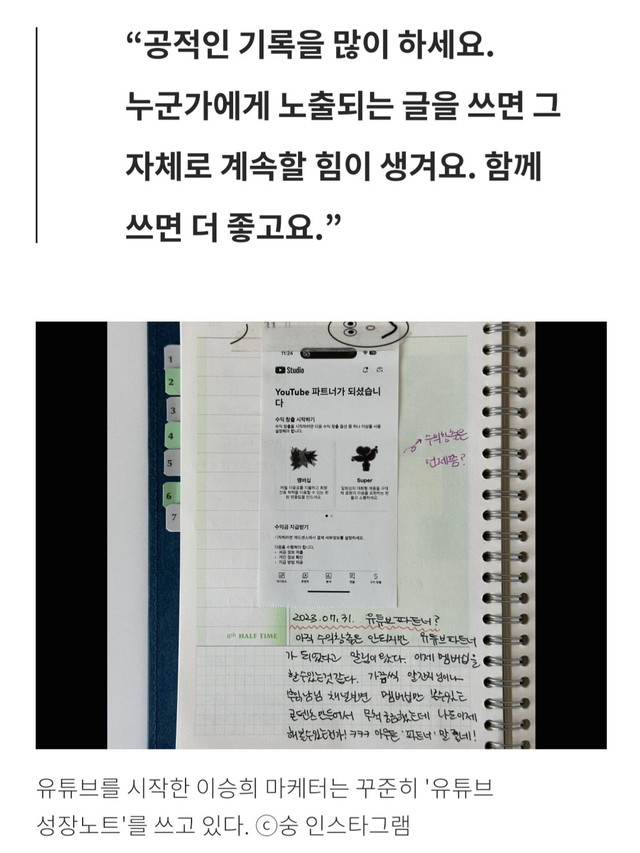 “공적인 기록을 많이 하세요.
누군가에게 노출되는 글을 쓰면 그
자체로 계속할 힘이 생겨요. 함께
쓰면 더 좋고요.”
1
2
3
4
5
6
7
11:24
Studio
YouTube 파트너가 되셨습니
다
수익 창출 시작하기
멤버십
Super
수익금 지급받기
수익창출은
언제쯤?
6th HALF TIME
2023.07.31. 유튜브파트너?
아직 수익창출은 안되지만 유튜브파트너
가 되었다고 알림이 왔다. 이제 멤버십을
할수있는것같다. 가끔씩
채널보면 멤버십만 볼수있는
나도이제
해볼수있는건가! ㅋㅋㅋ 아무튼 '파트너' 말 좋네!
유튜브를 시작한 이승희 마케터는 꾸준히 '유튜브
성장노트'를 쓰고 있다. ⓒ숭 인스타그램